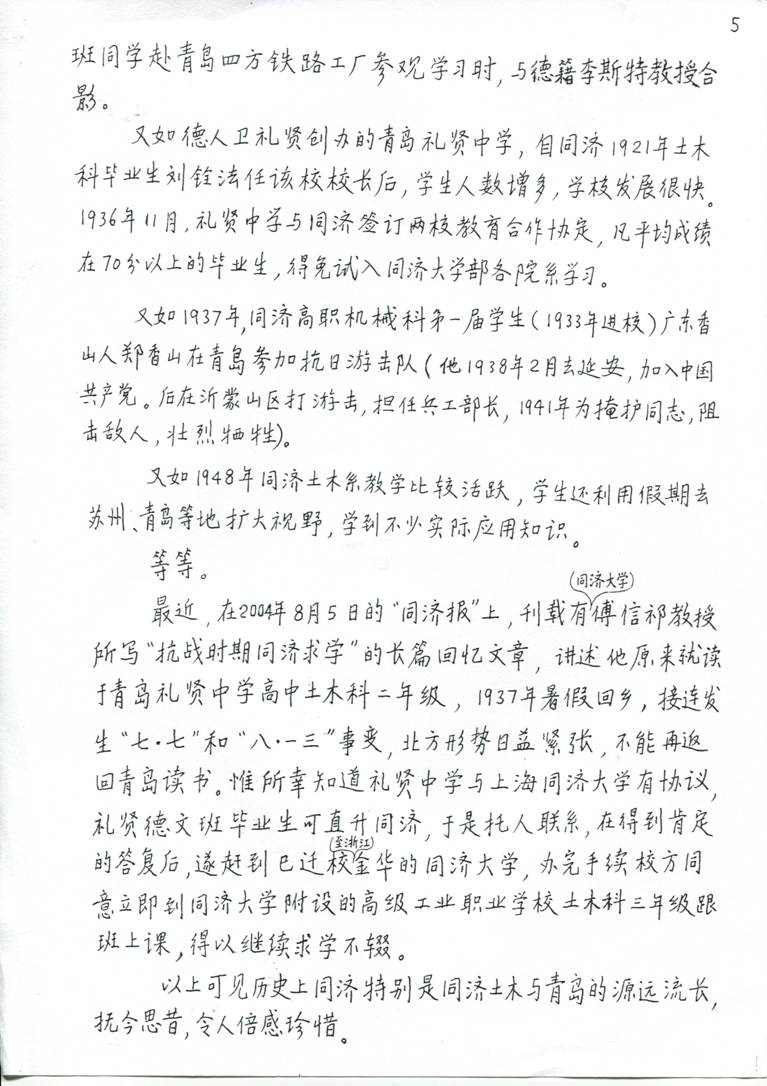 5
班同学赴青岛四方铁路工厂参观学习时,与德籍李斯特教授合
影。
又如德人卫礼贤创办的青岛礼贤中学,自同济1921年土木
科毕业生刘铨法任该校校长后,学生人数增多,学校发展很快。
1936年11月,礼贤中学与同济签订两校教育合作协定,凡平均成绩
在70分以上的毕业生,得免试入同济大学部各院系学习。
又如1937年,同济高职机械科第一届学生(1933年进校)广东香
山人郑香山在青岛参加抗日游击队(他1938年2月去延安,加入中国
共产党。后在沂蒙山区打游击,担任兵工部长,1941年为掩护同志,阻
击敌人,壮烈牺牲)。
又如1948年同济土木系教学比较活跃,学生还利用假期去
苏州、青岛等地扩大视野,学到不少实际应用知识。
等等。
(同济大学)
最近,在2004年8月5日的“同济报”上,刊载有傅信祁教授
所写“抗战时期同济求学”的长篇回忆文章,讲述他原来就读
于青岛礼贤中学高中土木科二年级,1937年暑假回乡,接连发
生“七·七”和“八·一三”事变,北方形势日益紧张,不能再返
回青岛读书。惟所幸知道礼贤中学与上海同济大学有协议,
礼贤德文班毕业生可直升同济,于是托人联系,在得到肯定
(至浙江)
的答复后,遂赶到已迁校金华的同济大学,办完手续校方同
意立即到同济大学附设的高级工业职业学校土木科三年级跟
班上课,得以继续求学不辍。
以上可见历史上同济特别是同济土木与青岛的源远流长,
抚今思昔,令人倍感珍惜。